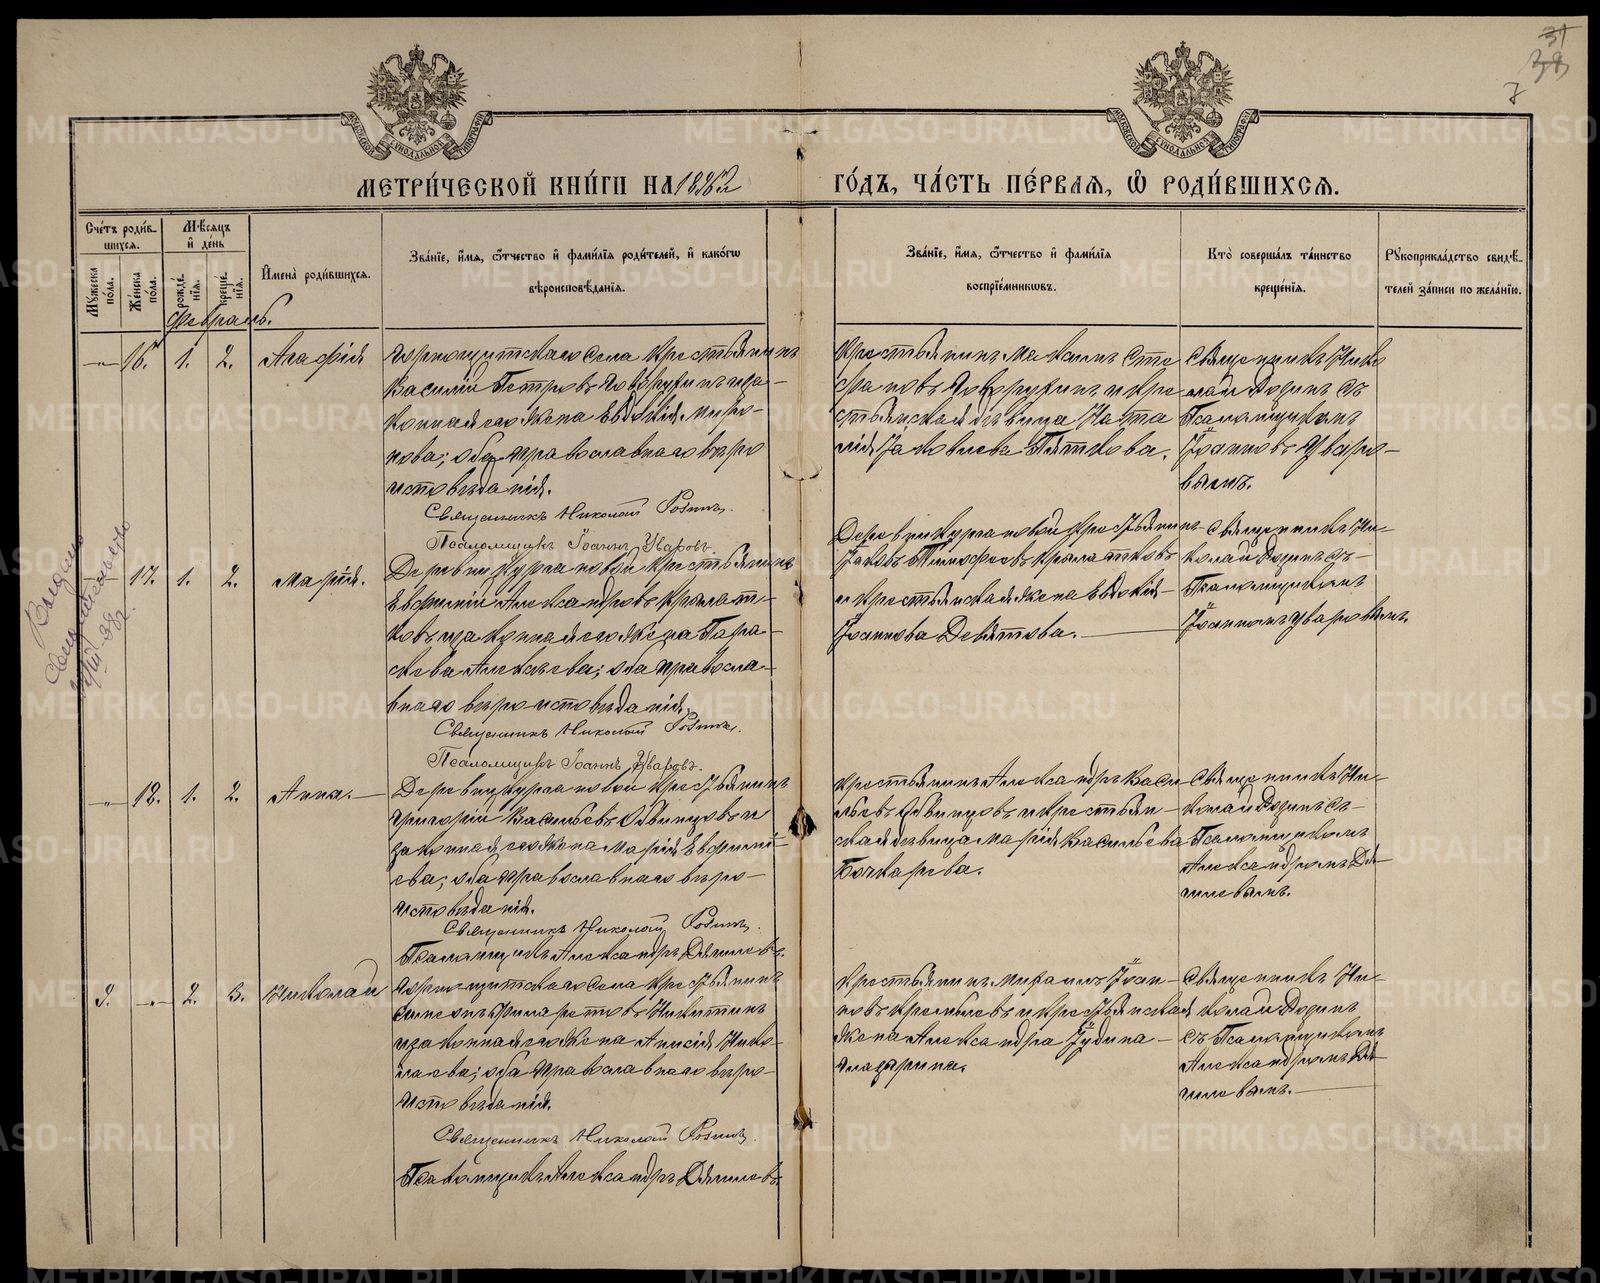 31
38
7
МЕТРИ́ЧЕСКОЙ КНИ́ГИ НА 1896й ГО́ДЪ, ЧА́СТЬ ПЕ́РВАЯ, Ѡ҆ РОДИ́ВШИХСЯ.
Сче́тъ роди́вшихся.
Му́жеска по́ла.
Же́нска по́ла.
Мѣ́сяцъ и҆ де́нь
рожде́нїя.
креще́нїя.
И҆мена̀ роди́вшихся.
Зва́нїе, и҆́мя, ѻ҆́тчество и҆ фами́лїя роди́телей, и҆ како́гѡ вѣроисповѣ́данїя.
Зва́нїе, и҆́мя, ѻ҆́тчество и҆ фами́лїя воспрїе́мниковъ.
Кто̀ соверша́лъ та́инство креще́нїя.
Рꙋкоприкла́дство свидѣ́телей за́писи по жела́нїю.
Февраль.
-„- 16. 1. 2. Агафія
Горнощитскаго села крестьянинъ
Василій Петровъ и за-
конная его жена Евдокія Миро-
нова; оба православнаго вѣро
исповѣданія.
Священникъ Николай Родинъ.
Псаломщикъ Іоаннъ Уваровъ.
Крестьянинъ Максимъ Сте
фановъ и кре
стьянская дѣвица Ната
лія Яковлева Пяткова.
Священникъ Нико
лай Родинъ съ
Псаломщикомъ
Іоанномъ Уваро-
вымъ.
17. 1. 2. Марія.
Деревни Кургановой крестьянинъ
Евфимій Александровъ Крылат-
ковъ и законная его жена Пара-
скева Алексѣева; оба правосла-
внаго вѣроисповѣданія.
Священникъ Николай Родинъ.
Псаломщикъ Іоаннъ Уваровъ.
Деревни Кургановой крестьянинъ
Іаковъ Тимофеевъ Крылатковъ
и крестьянская жена Евдокія
Іоаннова Девятова.
Священникъ Ни-
колай Родинъ съ
Псаломщикомъ
Іоанномъ Уваровымъ.
-„- 18. 1. 2. Анна.
Деревни Кургановой крестьянинъ
Григорій Васильевъ Одвинцовъ и
законная его жена Марія Евфимі-
ева; оба православнаго вѣро-
исповѣданія.
Священникъ Николай Родинъ.
Псаломщикъ Александръ
Крестьянинъ Александръ Васи-
льевъ Одвинцовъ и крестьян-
ская дѣвица Марія Васильева
Бочкарева.
Священникъ Ни-
колай Родинъ съ
Псаломщикомъ
Александромъ
9. -„- 2. 3. Николай
Горнощитскаго села крестьянинъ
Симеонъ Филаретовъ Никитинъ
и законная его жена Анисія Нико-
лаева; оба православнаго вѣро-
исповѣданія.
Священникъ Николай Родинъ.
Псаломщикъ Александръ
Крестьянинъ Михаилъ Іоан-
новъ и крестьянская
жена Александра Іудина
Священникъ Ни-
колай Родинъ
съ Псаломщикомъ
Александромъ
METRIKI.GASO-URAL.RU